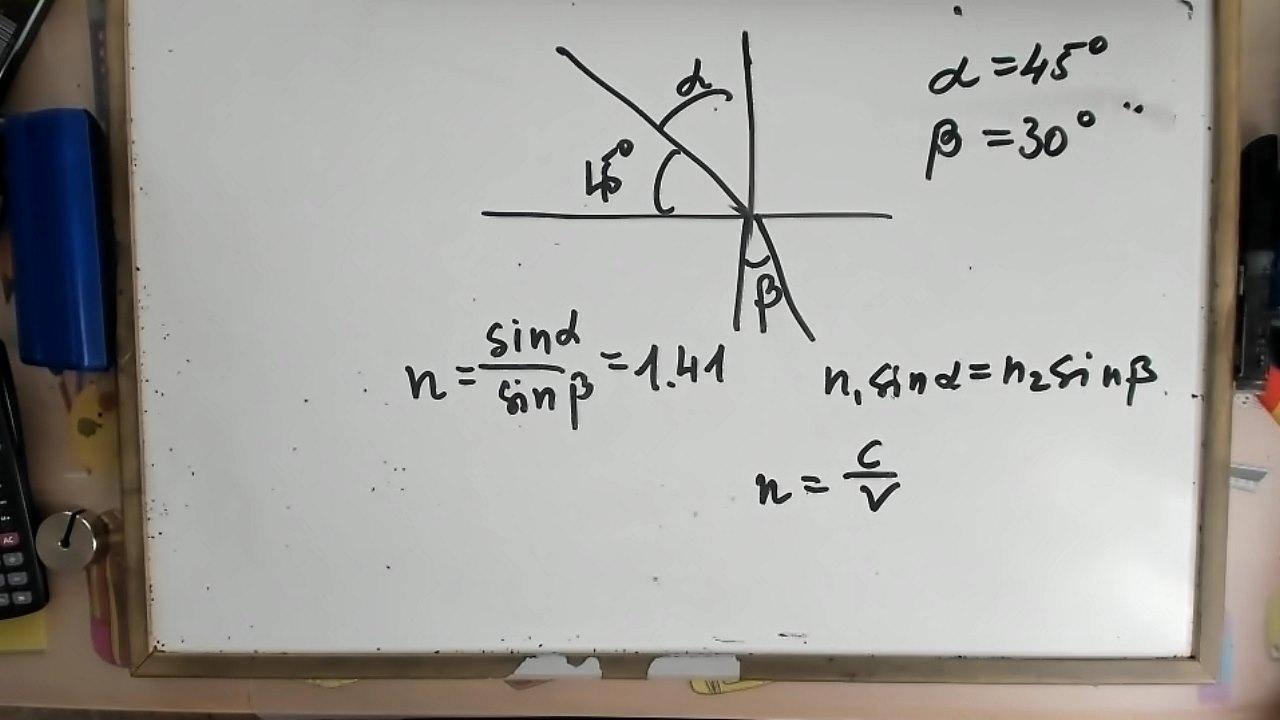 α
α = 45°
β = 30°
45°
β
n = sinα / sinβ = 1.41
n₁ sinα = n₂ sinβ
n = c / v
AC